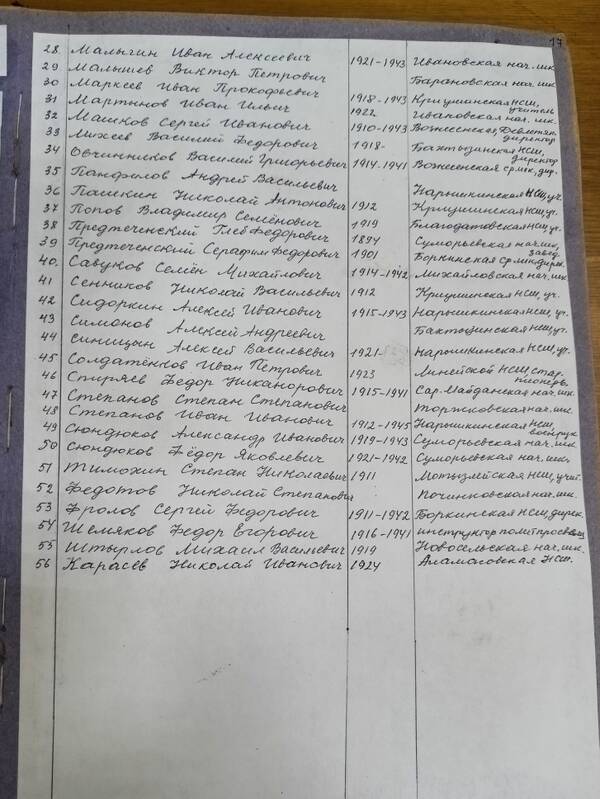 17
28 Малыгин Иван Алексеевич 1921-1943 Ивановская нач. шк.
29 Малышев Виктор Петрович Барановская нач. шк.
30 Маркеев Иван Прокофьевич 1918-1943 Кришминская НСШ, учитель
31 Мартынов Иван Ильич 1922 Ивановская нач. шк.
32 Машков Сергей Иванович 1910-1943 Вожненская директор
33 Михеев Василий Федорович 1918- Бахтызинская НСШ, директор
34 Овчинников Василий Григорьевич 1914-1941 Вознесенская ср. шк., дир.
35 Панфилов Андрей Васильевич
36 Пашкин Николай Антонович 1912 Нарышкинская НСШ, уч.
37 Попов Владимир Семёнович 1919 Кришминская НСШ, уч.
38 Предтеченский Глеб Федорович 1894 Благодатовская НСШ, уч.
39 Предтеченский Серафим Федорович 1901 Суморьевская нач. шк., завед.
40. Савуков Семён Михайлович 1914-1942 Боркинская ср. шк. дирек.
Михайловская нач. шк.
41 Сенников Николай Васильевич 1912 Кришминская НСШ, уч.
42 Сидоркин Алексей Иванович 1915-1943 Нарышкинская НСШ, уч.
43 Симонов Алексей Андреевич Бахтызинская НСШ, уч.
44 Синицын Алексей Васильевич 1921- Нарышкинская НСШ, уч.
45 Солдатёнков Иван Петрович 1923 Линейской НСШ, стар. пионерв.
46 Спиряев Федор Никанорович 1915-1941 Сар. Майданская нач. шк.
47 Степанов Степан Степанович Торжковская нач. шк.
48 Степанов Иван Иванович 1912-1945 Нарышкинская НСШ, военрук
49 Сюндюков Александр Иванович 1919-1943 Суморьевская нач. шк.
50 Сюндюков Фёдор Яковлевич 1921-1942 Суморьевская нач. шк.
51 Тимохин Степан Николаевич 1911 Мотызлейская НСШ, учит.
52 Федотов Николай Степанович Починковская нач. шк.
53 Фролов Сергей Федорович 1911-1942 Боркинская НСШ, дирек.
54 Шемяков Федор Егорович 1916-1941 инструктор политпросвещ.
55 Штырлов Михаил Васильевич 1919 Новосельская нач. шк.
56 Карасёв Николай Иванович 1924 Аламасовская НСШ.